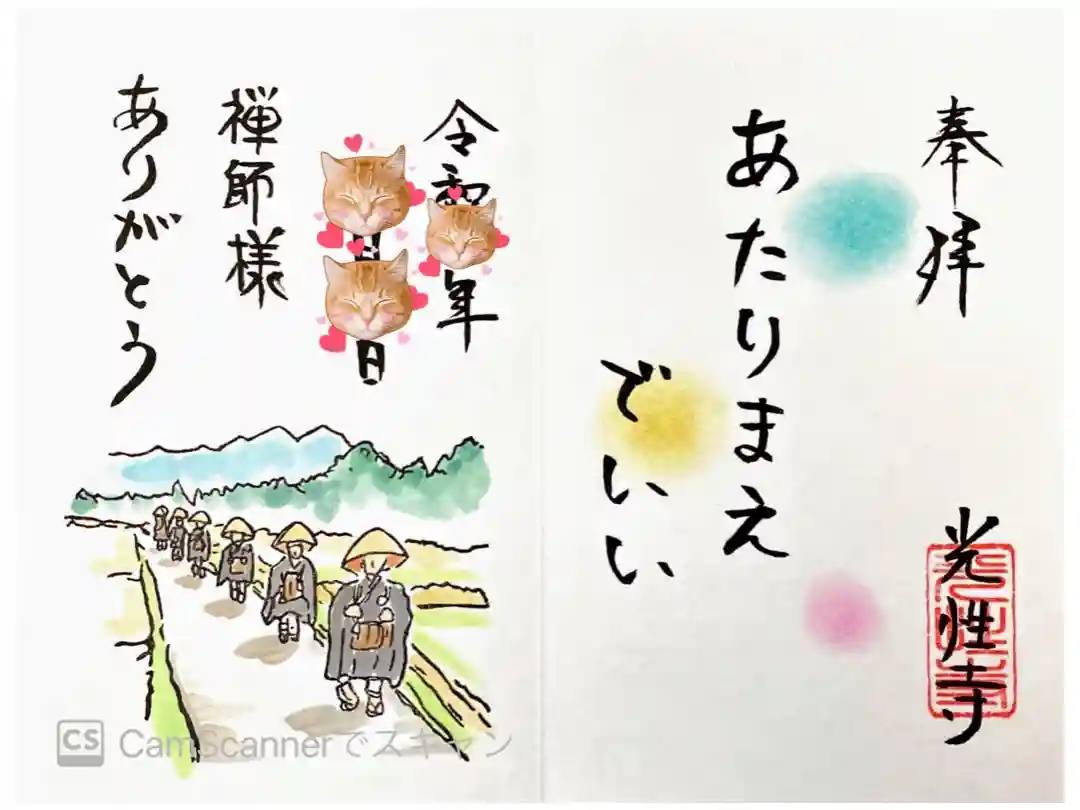 奉拝
あたりまえ
でいい
光性寺
令和 年
日
禅師様
ありがとう
CS CamScannerでスキャン